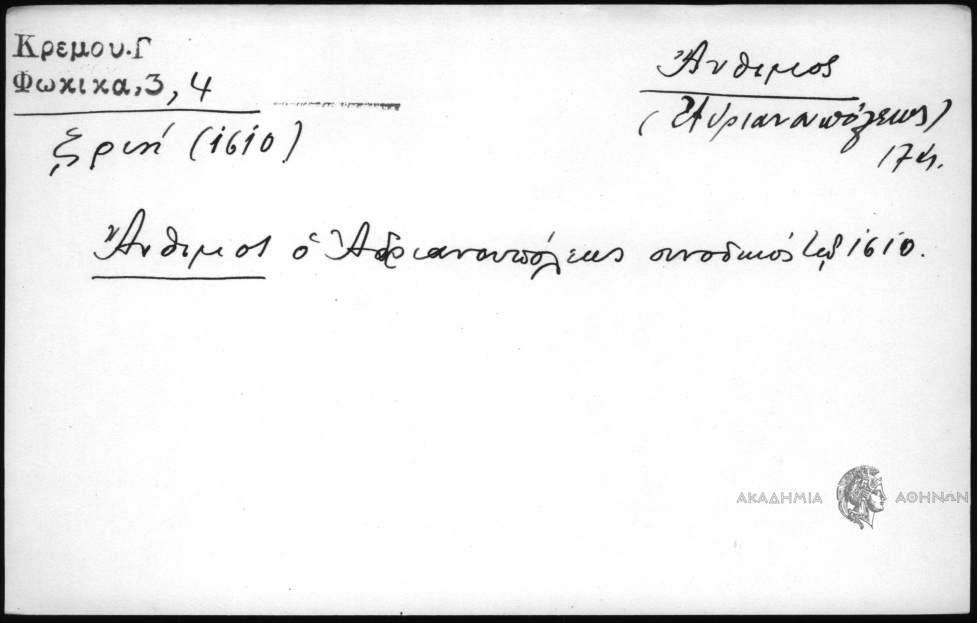 Κρεμου.Γ
Φωκικα,3,4
(1610)
Ἄνθιμος
(Ἀδριανουπόλεως)
17 αἰ.
Ἄνθιμος ὁ Ἀδριανουπόλεως συνοδικός τοῦ 1610.
ΑΚΑΔΗΜΙΑ ΑΘΗΝΩΝ